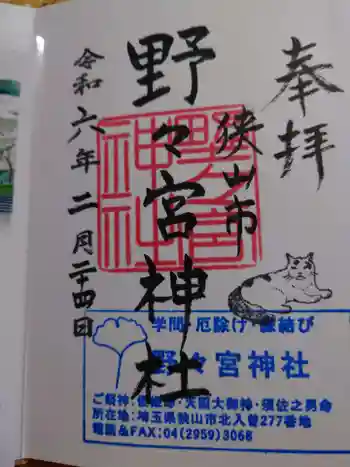 奉拝
狭山市
野々宮神社
令和六年二月二十四日
野々宮
神社
学問・厄除け・縁結び
野々宮神社
ご祭神:倭姫命・天照大御神・須佐之男命
所在地:埼玉県狭山市北入曽277番地
電話&FAX:04(2959)3068